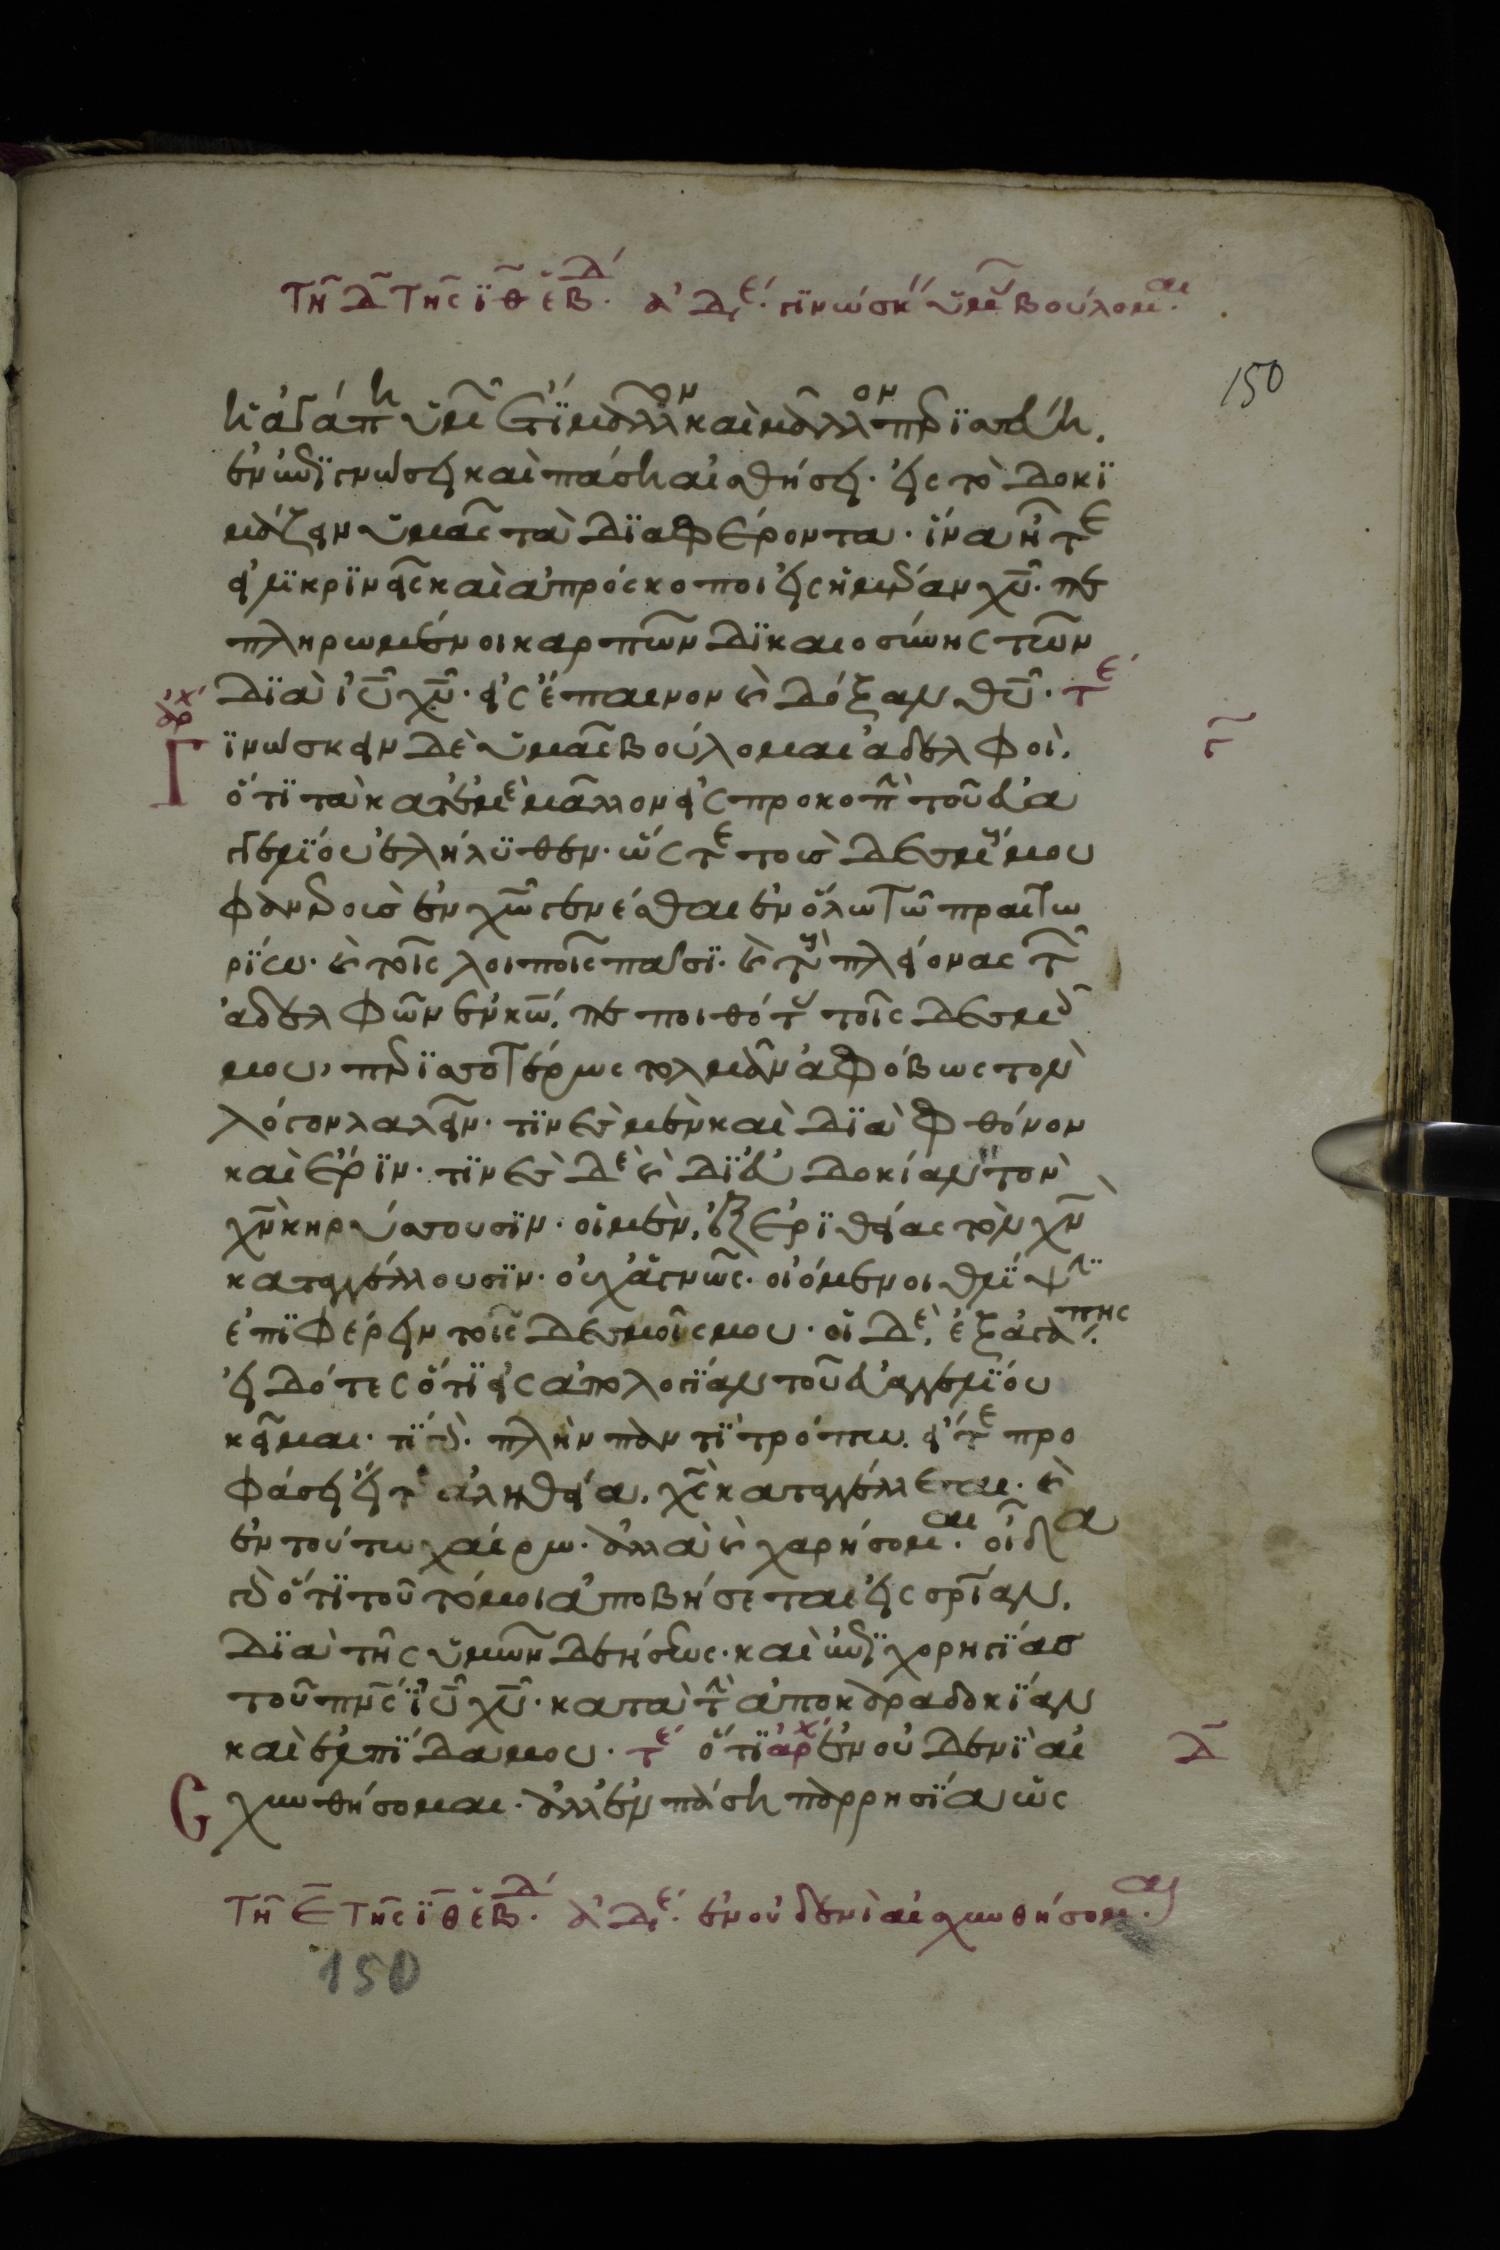 Τῆ Δ τῆς ιθ ἑβδ. ἀδε. γινώσκ ὑμ βούλομαι.
150
ἡ ἀγάπη ὑμ ἔτι μᾶλλον καὶ μᾶλλον περισσεύη.
ἐν ἐπιγνώσει καὶ πάση αἰσθήσει. εἰς τὸ δοκι
μάζειν ὑμᾶς τὰ διαφέροντα. ἵνα ἦτε
εἰλικρινεῖς καὶ ἀπρόσκοποι εἰς ἡμέραν χυ. πε
πληρωμένοι καρπῶν δικαιοσύνης τῶν
διὰ ιυ χυ. εἰς ἔπαινον καὶ δόξαν θυ. τε
ἀρχ
Γινώσκειν δὲ ὑμᾶς βούλομαι ἀδελφοὶ.
γ
ὅτι τὰ κατ' ἐμὲ μᾶλλον εἰς προκοπὴ τοῦ εὐα
γγελίου ἐλήλυθεν. ὥστε τοὺς δεσμούς μου
φανεροὺς ἐν χω γενέσθαι ἐν ὅλω τῶ πραιτω
ρίω. καὶ τοῖς λοιποῖς πᾶσι. καὶ τοὺς πλείονας τῶν
ἀδελφῶν ἐν κω. πεποιθότας τοῖς δεσμοῖς
μου, περισσοτέρως τολμᾶν ἀφόβως τὸν
λόγον λαλεῖν. τινὲς μὲν καὶ διὰ φθόνον
καὶ ἔριν. τινὲς δὲ καὶ δι' εὐδοκίαν τὸν
χν κηρύσσουσιν. οἱ μὲν, ἐξ ἐριθείας τὸν χν
καταγγέλλουσιν. οὐχ ἁγνῶς. οἰόμενοι θλίψιν
ἐπιφέρειν τοῖς δεσμοῖς μου. οἱ δὲ, ἐξ ἀγάπης.
εἰδότες ὅτι εἰς ἀπολογίαν τοῦ εὐαγγελίου
κεῖμαι. τί γὰρ. πλὴν παντὶ τρόπω. εἴτε προ
φάσει εἴτε ἀληθεία. χς καταγγέλλεται. καὶ
ἐν τούτω χαίρω. ἀλλὰ καὶ χαρήσομαι. οἶδα
γὰρ ὅτι τοῦτό μοι ἀποβήσεται εἰς σρίαν.
διὰ τῆς ὑμῶν δεήσεως. καὶ ἐπιχορηγίας
τοῦ πνς ιυ χυ. κατὰ τὴν ἀποκαραδοκίαν
καὶ ἐλπίδα μου. τε ὅτι ἀρχ ἐν οὐδενὶ αἰ
δ
σχυνθήσομαι. ἀλλ' ἐν πάση παρρησία ὡς
Τῆ Ε τῆς ιθ ἑβδ. ἀδε. ἐν οὐδενὶ αἰσχυνθήσομαι.
150